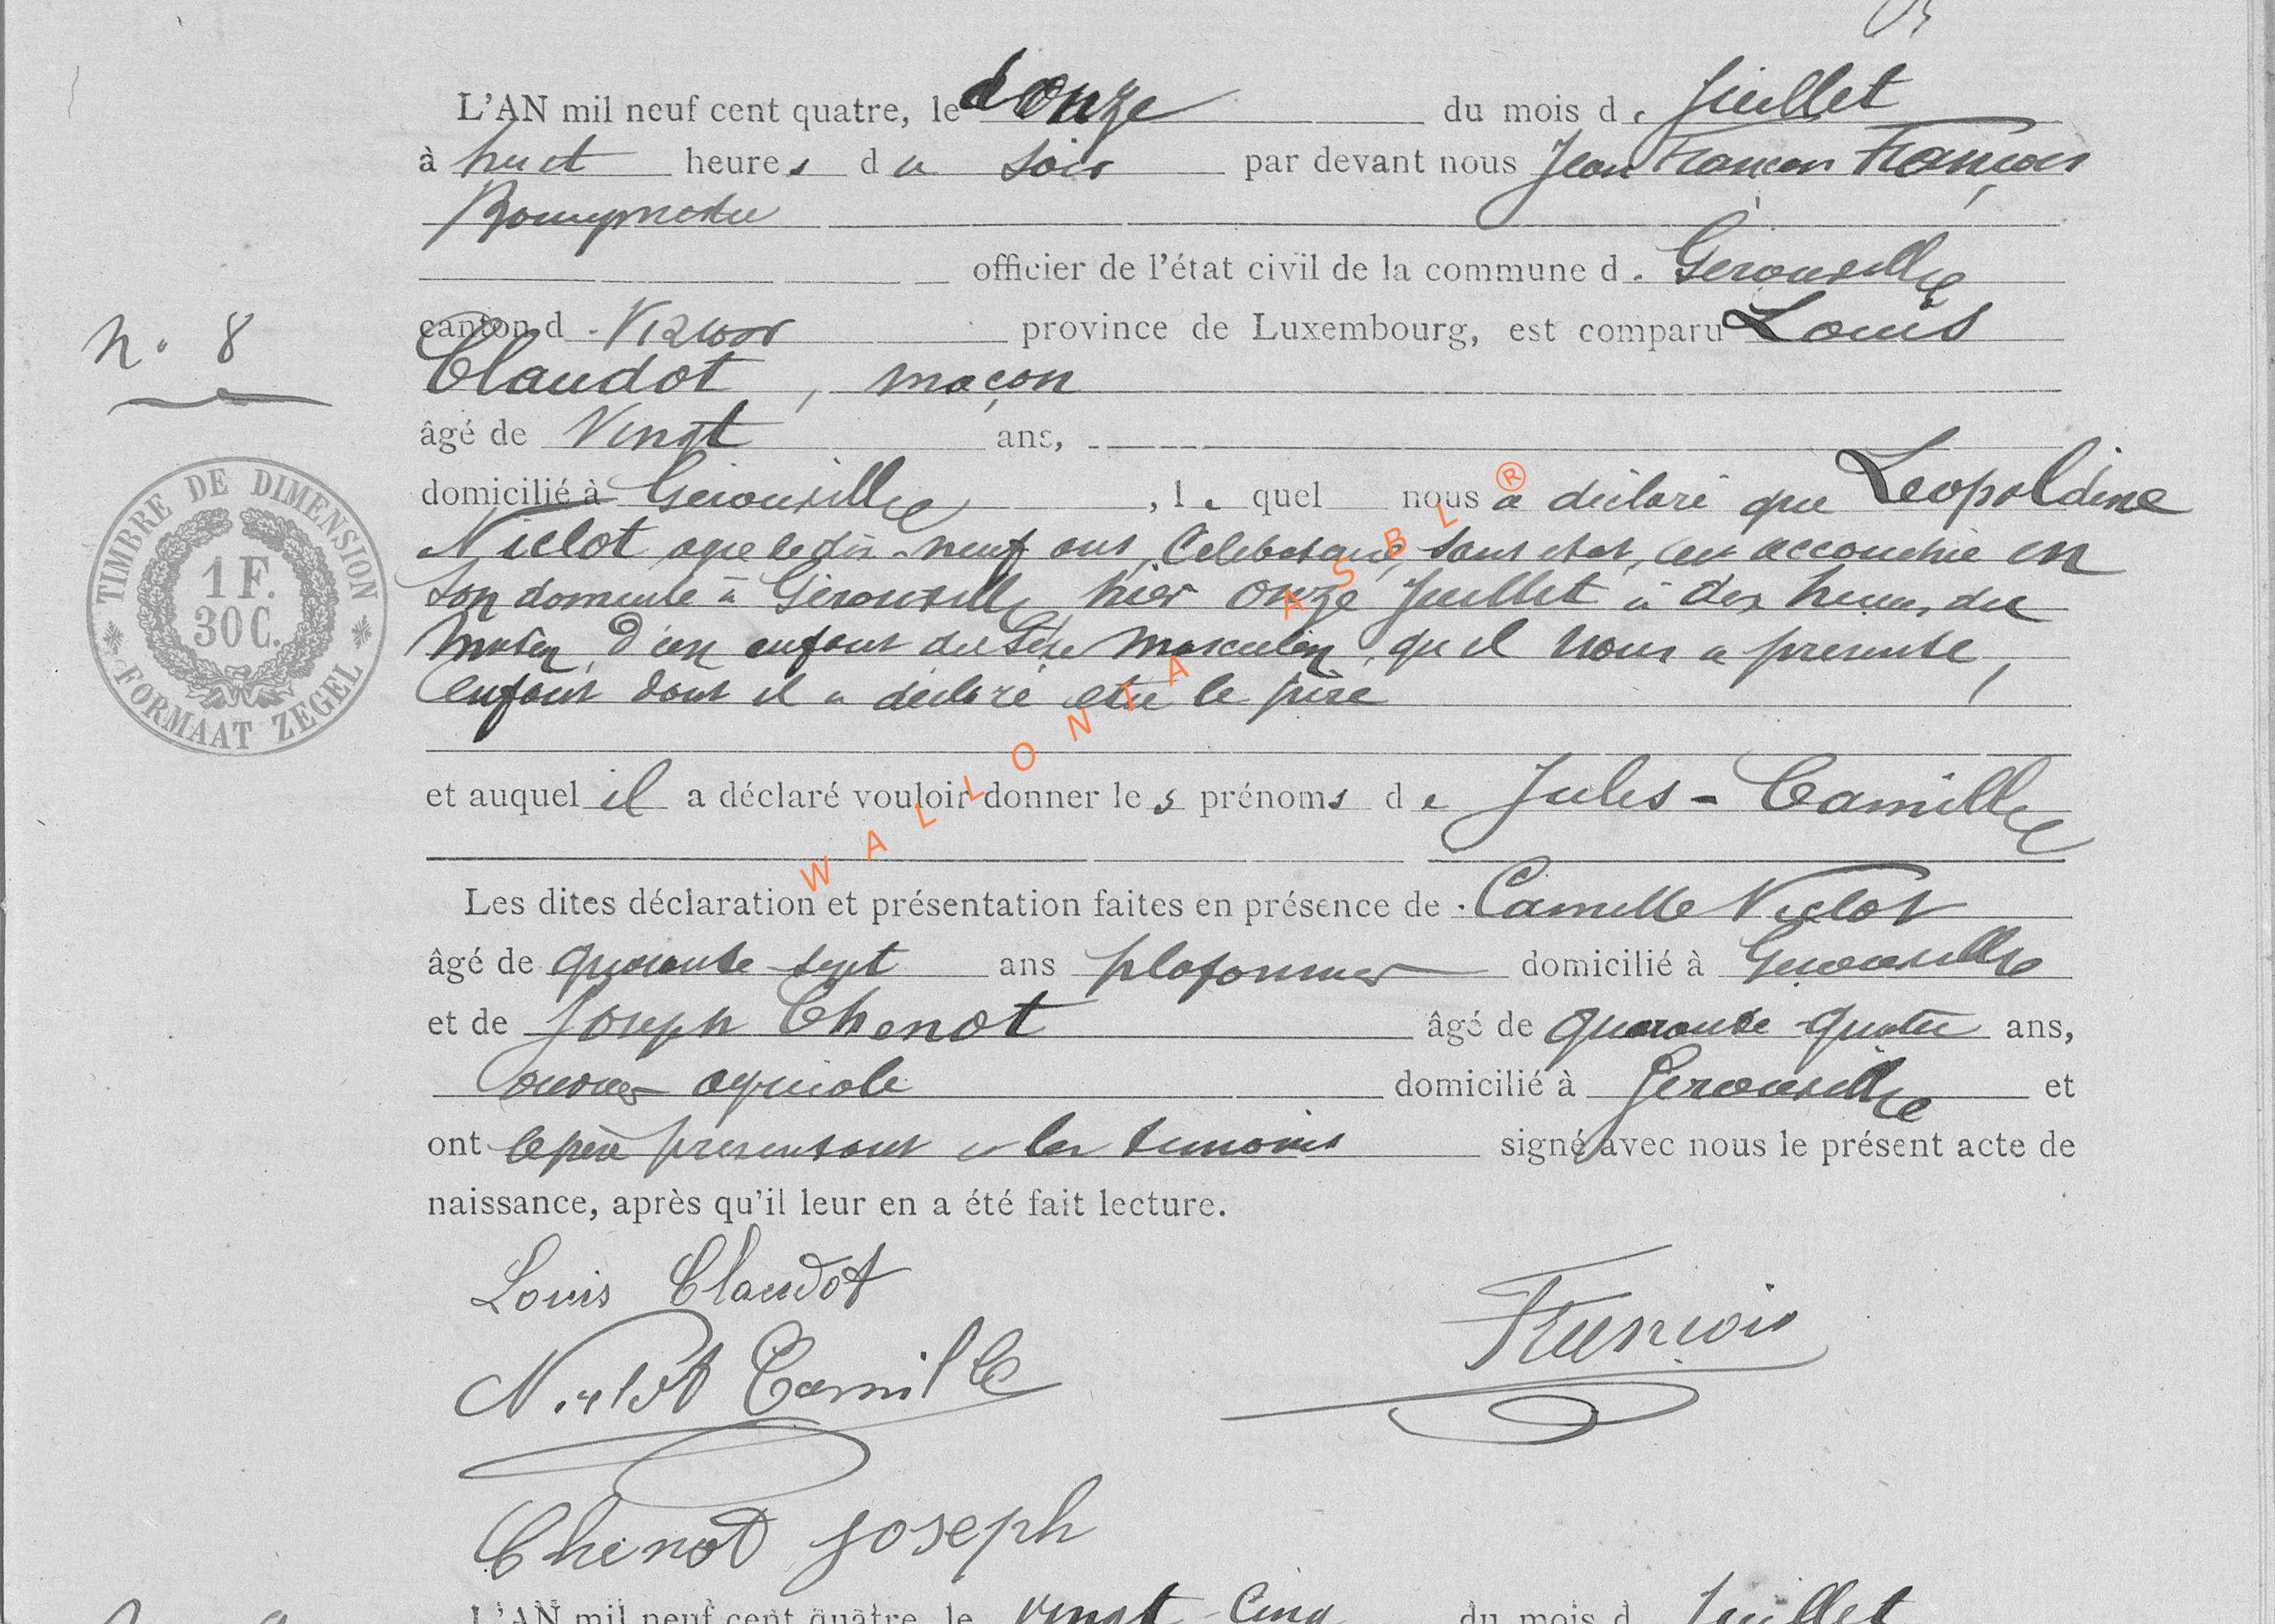 L'AN mil neuf cent quatre, le douze du mois de Juillet
à huit heures du soir par devant nous Jean François François
Bourgmestre
officier de l'état civil de la commune d. Gérouville
canton d. Virton province de Luxembourg, est comparu Louis
n. 8
Claudot, maçon
âgé de Vingt ans,
domicilié à Gérouville, le quel nous a déclaré que Léopoldine
Niclot agée de dix-neuf ans, Célibataire, sans état, est accouchée en
son domicile à Gérouville hier onze Juillet à dix heures du
matin, d'un enfant du sexe masculin, qu'il nous a présenté,
enfant dont il a déclaré être le père
TIMBRE DE DIMENSION
1 F.
30 C.
FORMAAT ZEGEL
et auquel il a déclaré vouloir donner les prénoms de Jules-Camille
Les dites déclaration et présentation faites en présence de Camille Niclot
âgé de quarante-sept ans plafonneur domicilié à Gérouville
et de Joseph Chenot âgé de quarante-quatre ans,
ouvrier agricole domicilié à Gérouville et
ont le père présentant et les témoins signé avec nous le présent acte de
naissance, après qu'il leur en a été fait lecture.
Louis Claudot
François
Niclot Camille
Chenot Joseph
L'AN mil neuf cent quatre, le vingt-cinq du mois d Juillet
WALLONIA ASBL ®